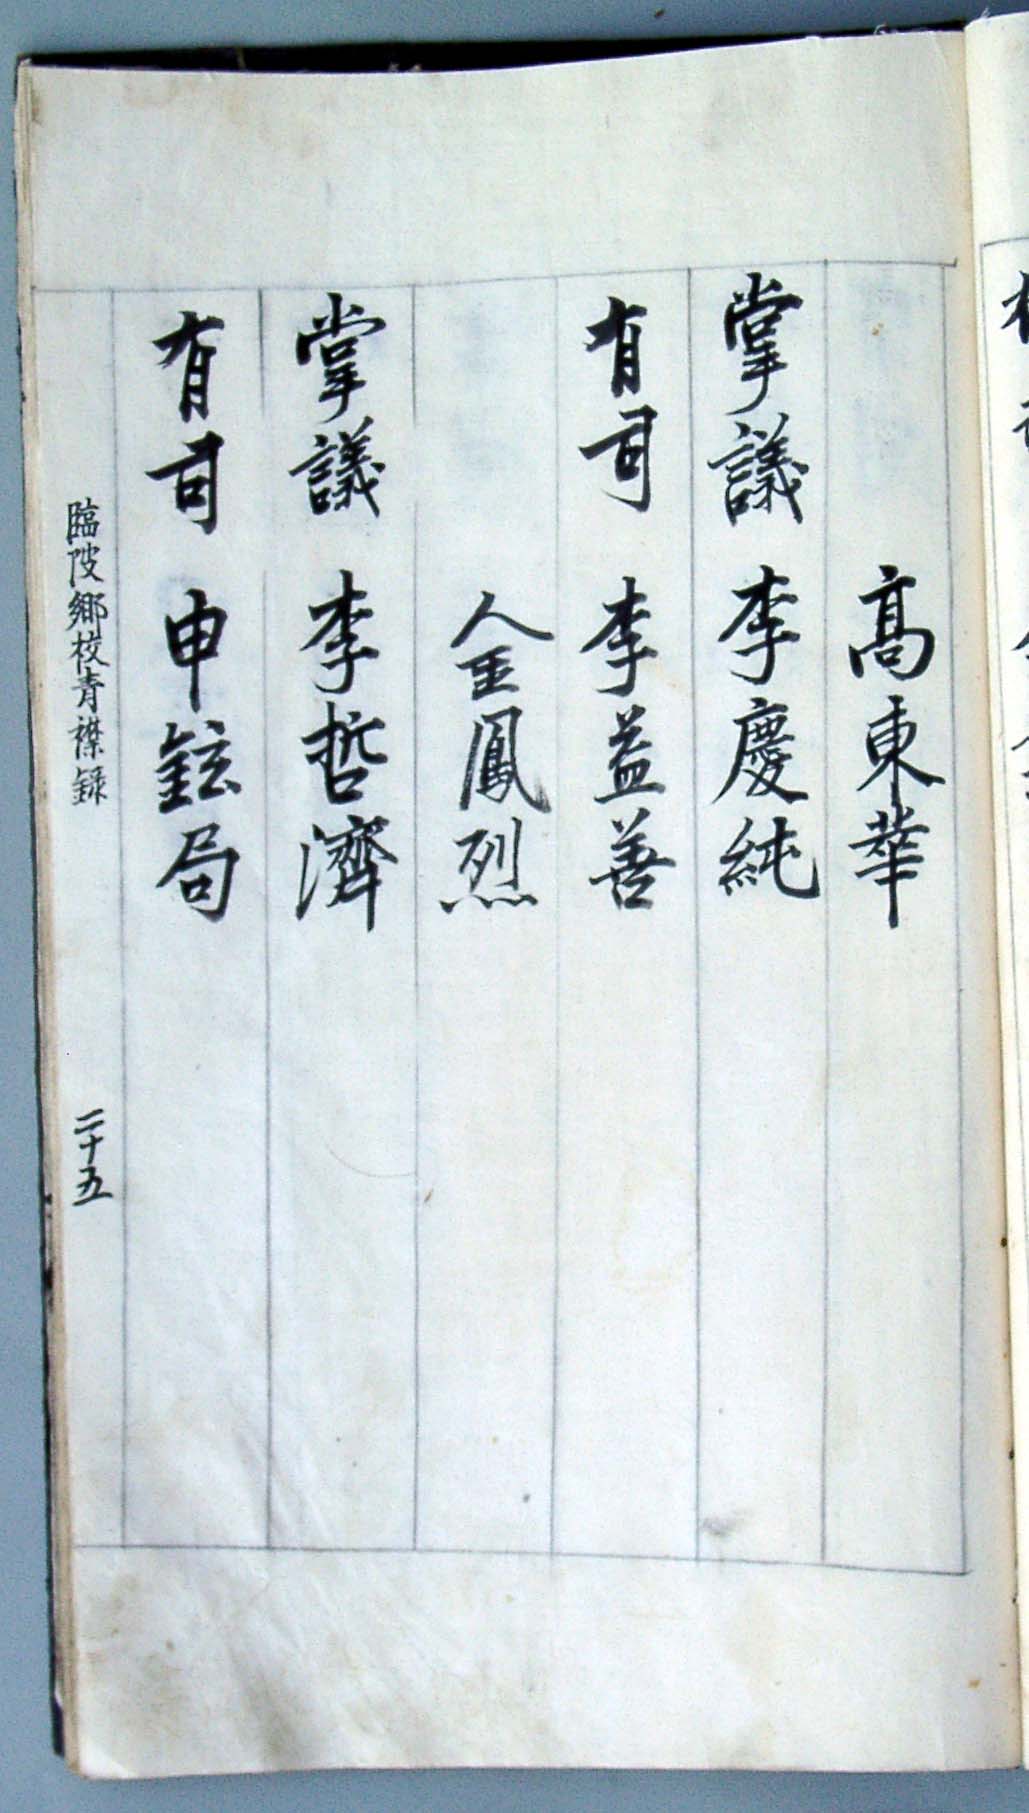 高東華
掌議 李慶純
有司 李益善
金鳳烈
掌議 李哲濟
有司 申鉉局
臨陂鄉校青襟録
二十五